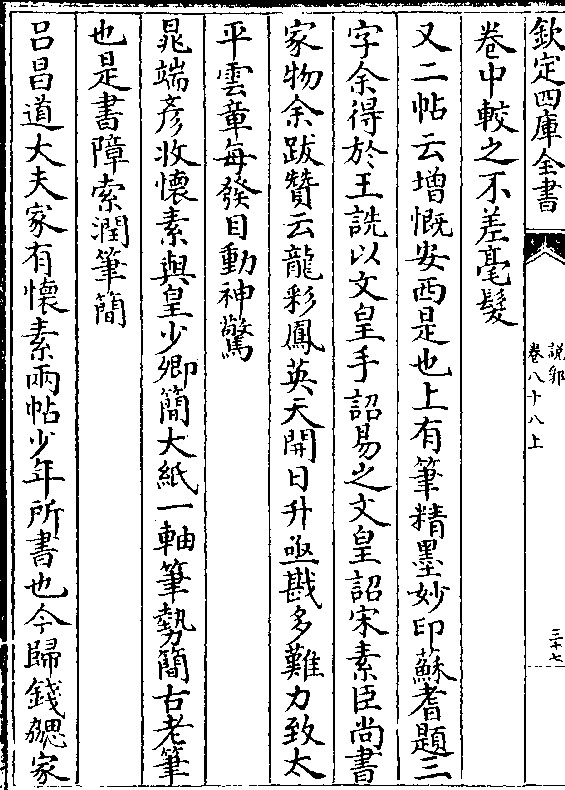 欽定四庫全書
說郛
卷八十八上
三十七
卷中較之不差毫髮
又二帖云增慨安西是也上有筆精墨妙印蘇耆題三
字余得於王詵以文皇手詔易之文皇詔宋素臣尚書
家物余跋贊云龍彩鳳英天開日升亟戡多難力致太
平雲章每發目動神驚
晁端彥收懷素與皇少卿簡大紙一軸筆勢簡古老筆
也是書障索潤筆簡
呂昌道大夫家有懷素兩帖少年所書也今歸錢勰家